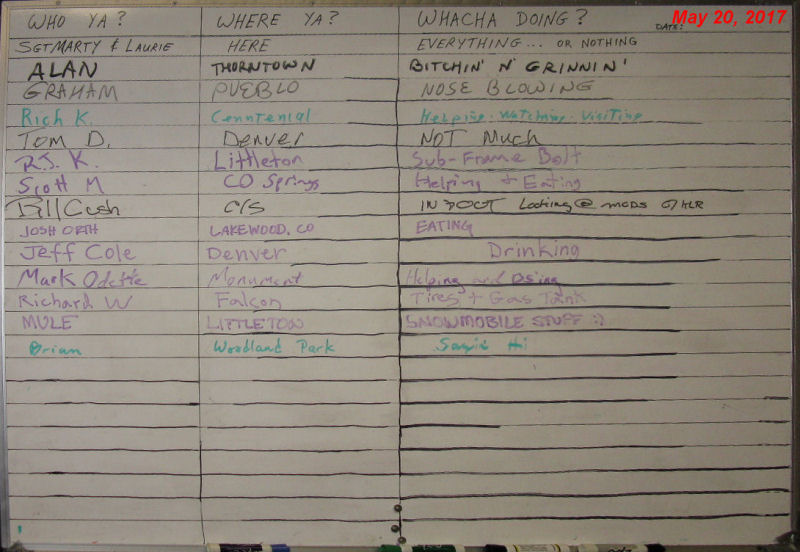 May 20, 2017
WHO YA? WHERE YA? WHACHA DOING? DATE:
SGTMARTY & LAURIE HERE EVERYTHING... OR NOTHING
ALAN THORNTOWN BITCHIN' N' GRINNIN'
GRAHAM PUEBLO NOSE BLOWING
Rich K. Cenntenial Helping. Watching. Visiting
TOM D. Denver NOT Much
R.J. K. Littleton Sub-Frame Bolt
Scott M CO Springs Helping + Eating
Bill Cash C/S IN POCT Looking @ mods
JOSH ORTH LAKEWOOD, CO EATING
Jeff Cole Denver Drinking
Mark Odette Monument Helping and
Richard W Falcon Tires + Gas Tank
MULE LITTLETON SNOWMOBILE STUFF :)
Brian Woodland Park Hi